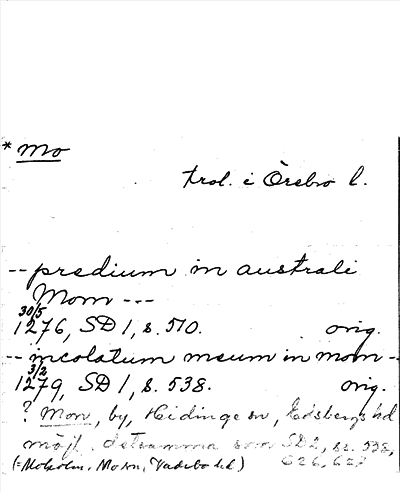 * Mo
trol. i Örebro l.
-- predium in australi
Mom ---
30/5
1276, SD 1, s. 510. orig.
-- incolatum meum in mom --
3/2
1279, SD 1, s. 538. orig.
? Mon, by, Hidinge sn, Edsbergs hd
möjl. detsamma som SD2, ss. 538,
626, 627
(= Moholm, Mo sn, Vadsbo hd)